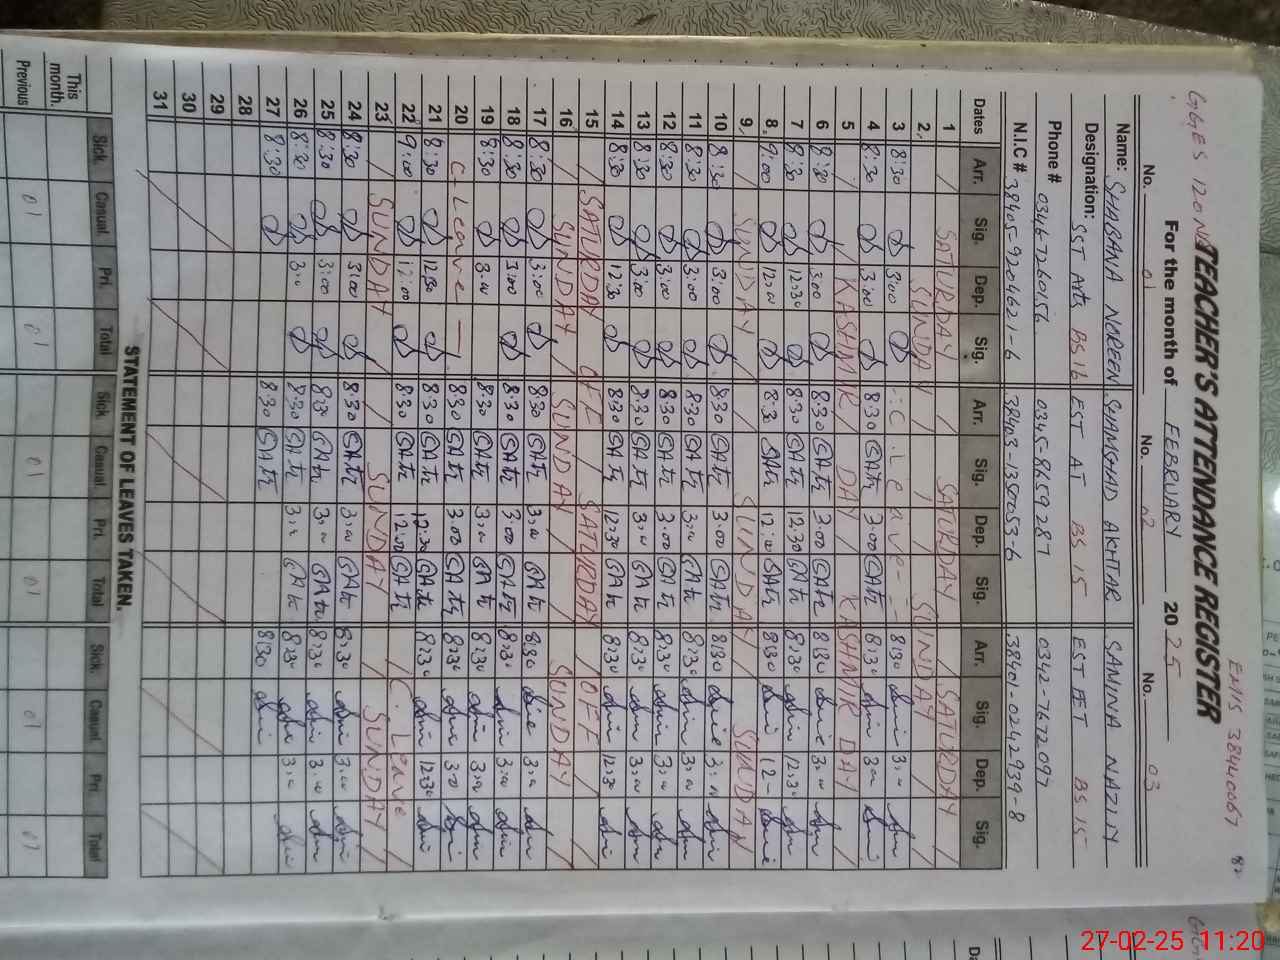 GGES 120 N EMIS 38440067
TEACHER'S ATTENDANCE REGISTER
For the month of FEBRUARY 2025
No. 01 No. 02 No. 03
Name: SHABANA NOREEN SHAMSHAD AKHTAR SAMINA NAZLI
Designation: SST Arts BS 16 EST AT BS 15 EST PET BS 15
Phone # 0346-7260156 0345-8659287 0342-7672097
N.I.C # 38405-9204621-6 38403-1350053-6 38401-0242939-8
Dates Arr. Sig. Dep. Sig. Arr. Sig. Dep. Sig. Arr. Sig. Dep. Sig.
1 SATURDAY SATURDAY SATURDAY
2 SUNDAY SUNDAY
3 8:30 3:00 C. Leave 8:30 3:00
4 8:30 3:00 8:30 3:00 8:30 3:00
5 KASHMIR DAY KASHMIR DAY
6 8:30 3:00 8:30 3:00 8:30 3:00
7 8:30 12:30 8:30 12:30 8:30 12:30
8 9:00 12:00 8:30 12:00 8:30 12
9 SUNDAY SUNDAY SUNDAY
10 8:30 3:00 8:30 3:00 8:30 3:00
11 8:30 3:00 8:30 3:00 8:30 3:00
12 8:30 3:00 8:30 3:00 8:30 3:00
13 8:30 3:00 8:30 3:00 8:30 3:00
14 8:30 12:30 8:30 12:30 8:30 12:30
15 SATURDAY OFF SATURDAY OFF
16 SUNDAY SUNDAY SUNDAY
17 8:30 3:00 8:30 3:00 8:30 3:00
18 8:30 3:00 8:30 3:00 8:30 3:00
19 8:30 3:00 8:30 3:00 8:30 3:00
20 C. Leave 8:30 3:00 8:30 3:00
21 8:30 12:30 8:30 12:30 8:30 12:30
22 9:00 12:00 8:30 12:00 C. Leave
23 SUNDAY SUNDAY SUNDAY
24 8:30 3:00 8:30 3:00 8:30 3:00
25 8:30 3:00 8:30 3:00 8:30 3:00
26 8:30 3:00 8:30 3:00 8:30 3:00
27 8:30 8:30 8:30
28
29
30
31
STATEMENT OF LEAVES TAKEN.
Sick. Casual. Pri. Total Sick Casual. Pri. Total Sick. Casual Pri. Total
This month.
Previous 01 01 01 01 01 01
27-02-25 11:20